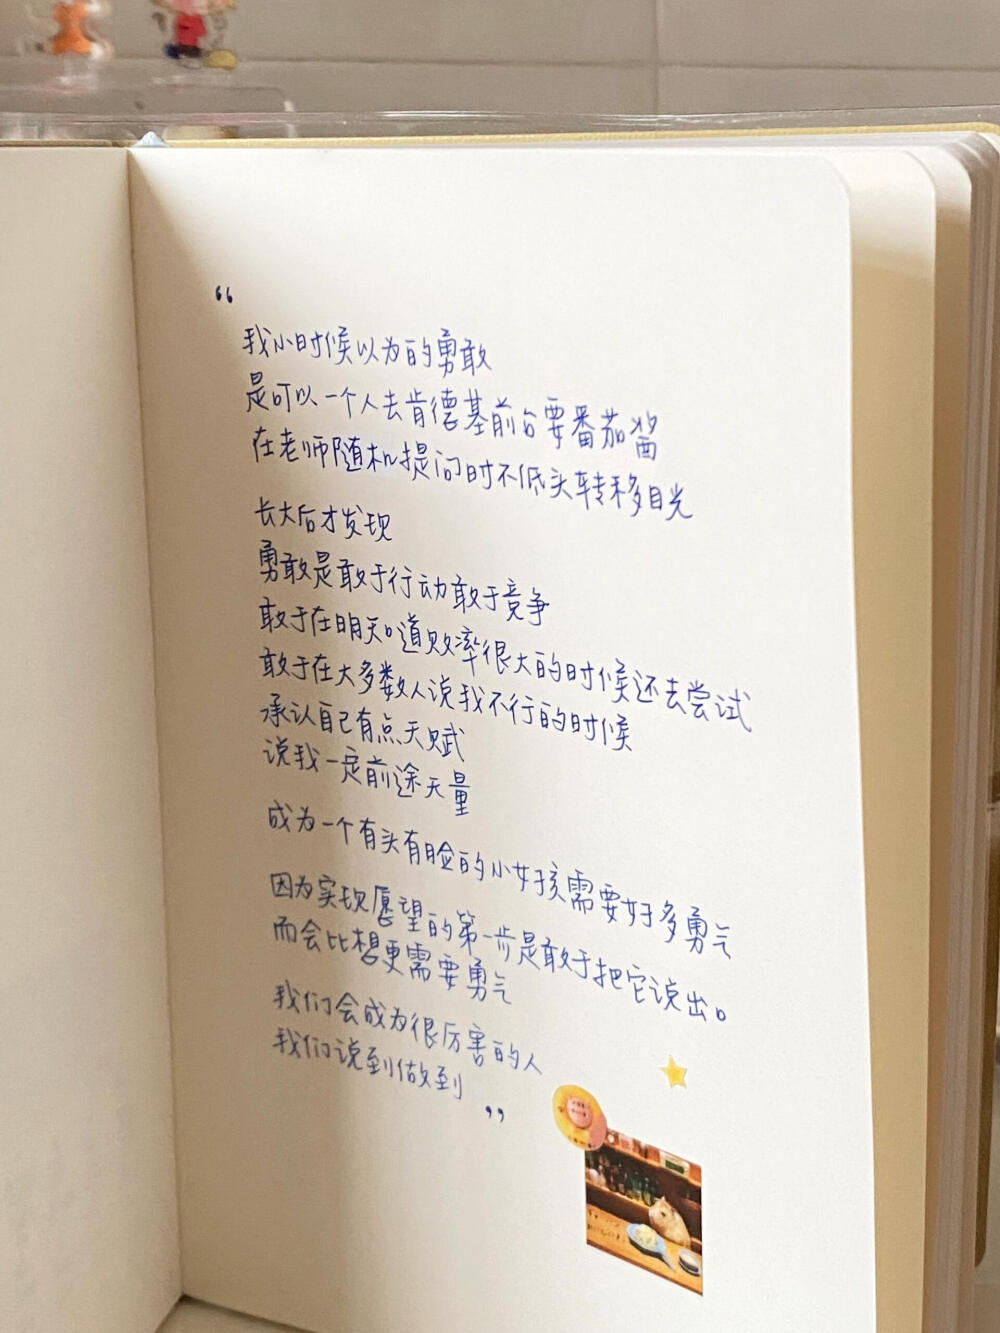 “
我小时候以为的勇敢
是可以一个人去肯德基前台要番茄酱
在老师随机提问时不低头转移目光
长大后才发现
勇敢是敢于行动敢于竞争
敢于在明知道败率很大的时候还去尝试
敢于在大多数人说我不行的时候
承认自己有点天赋
说我一定前途无量
成为一个有头有脸的小女孩需要好多勇气
因为实现愿望的第一步是敢于把它说出。
而会比想更需要勇气
我们会成为很厉害的人
我们说到做到
”